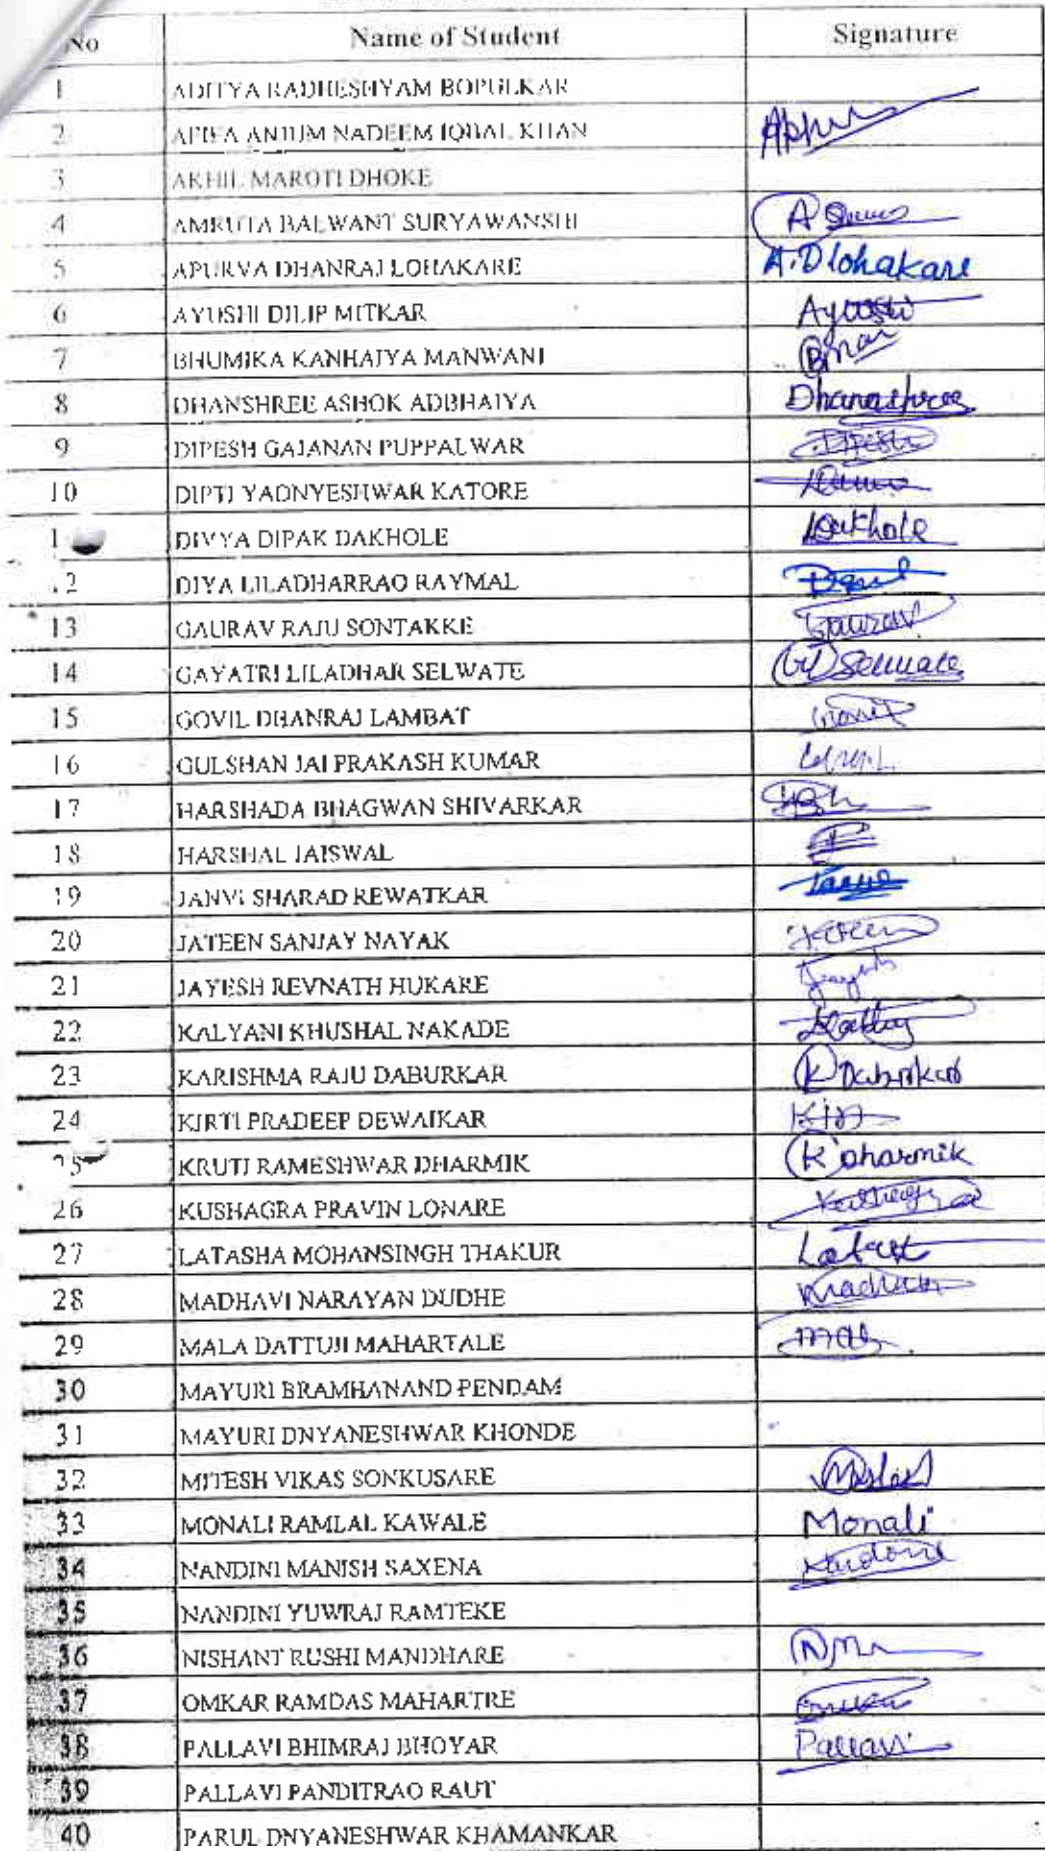 No Name of Student Signature
1 ADITYA RADHESHYAM BOPULKAR
2 AFIFA ANJUM NADEEM IQBAL KHAN
3 AKHIL MAROTI DHOKE
4 AMRUTA BALWANT SURYAWANSHI
5 APURVA DHANRAJ LOHAKARE A.D lohakare
6 AYUSHI DILIP MITKAR
7 BHUMIKA KANHAIYA MANWANI
8 DHANSHREE ASHOK ADBHAIYA Dhanashree
9 DIPESH GAJANAN PUPPALWAR
10 DIPTI YADNYESHWAR KATORE
1 DIVYA DIPAK DAKHOLE Dakhole
2 DIYA LILADHARRAO RAYMAL
13 GAURAV RAJU SONTAKKE Gaurav
14 GAYATRI LILADHAR SELWATE Selwate
15 GOVIL DHANRAJ LAMBAT
16 GULSHAN JAI PRAKASH KUMAR
17 HARSHADA BHAGWAN SHIVARKAR
18 HARSHAL JAISWAL
19 JANVI SHARAD REWATKAR
20 JATEEN SANJAY NAYAK
21 JAYESH REVNATH HUKARE
22 KALYANI KHUSHAL NAKADE
23 KARISHMA RAJU DABURKAR
24 KIRTI PRADEEP DEWAIKAR
25 KRUTI RAMESHWAR DHARMIK K Dharmik
26 KUSHAGRA PRAVIN LONARE
27 LATASHA MOHANSINGH THAKUR
28 MADHAVI NARAYAN DUDHE
29 MALA DATTUJI MAHARTALE
30 MAYURI BRAMHANAND PENDAM
31 MAYURI DNYANESHWAR KHONDE
32 MITESH VIKAS SONKUSARE
33 MONALI RAMLAL KAWALE Monali
34 NANDINI MANISH SAXENA
35 NANDINI YUWRAJ RAMTEKE
36 NISHANT RUSHI MANDHARE
37 OMKAR RAMDAS MAHARTRE
38 PALLAVI BHIMRAJ BHOYAR Pallavi
39 PALLAVI PANDITRAO RAUT
40 PARUL DNYANESHWAR KHAMANKAR